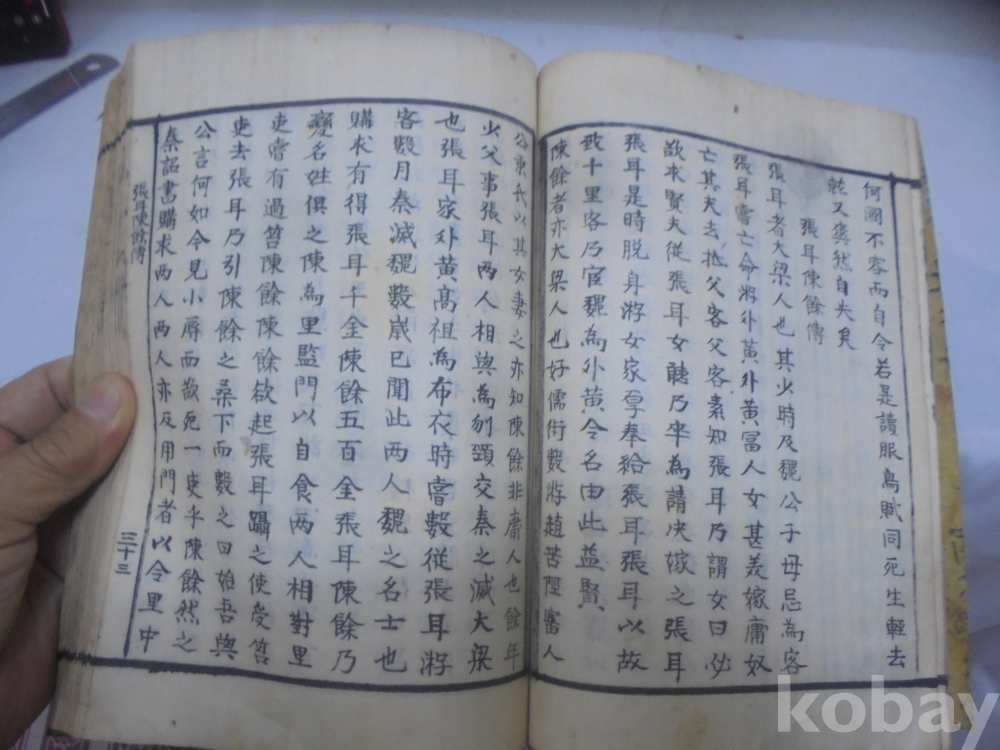 何國不容而自令若是讀服鳥賦同死生輕去
就又爽然自失矣
張耳陳餘傳
張耳者大梁人也其少時及魏公子毋忌為客
張耳嘗亡命游外黃外黃冨人女甚美嫁庸奴
亡其夫去抵父客父客素知張耳乃謂女曰必
欲求賢夫從張耳女聽乃卒為請决嫁之張耳
張耳是時脫身游女家厚奉給張耳張耳以故
致千里客乃宦魏為外黃令名由此益賢
陳餘者亦大梁人也好儒術數游趙苦陘富人
公乘氏以其女妻之亦知陳餘非庸人也餘年
少父事張耳兩人相與為刎頸交秦之滅大梁
也張耳家外黃髙祖為布衣時嘗數從張耳游
客數月秦滅魏數歲已聞此两人魏之名士也
購求有得張耳千金陳餘五百金張耳陳餘乃
變名姓俱之陳為里監門以自食两人相對里
吏嘗有過笞陳餘陳餘欲起張耳躡之使受笞
吏去張耳乃引陳餘之桑下而數之曰始吾與
公言何如今見小辱而欲死一吏乎陳餘然之
秦詔書購求两人两人亦反用門者以令里中
張耳陳餘傳
三十三
kobay